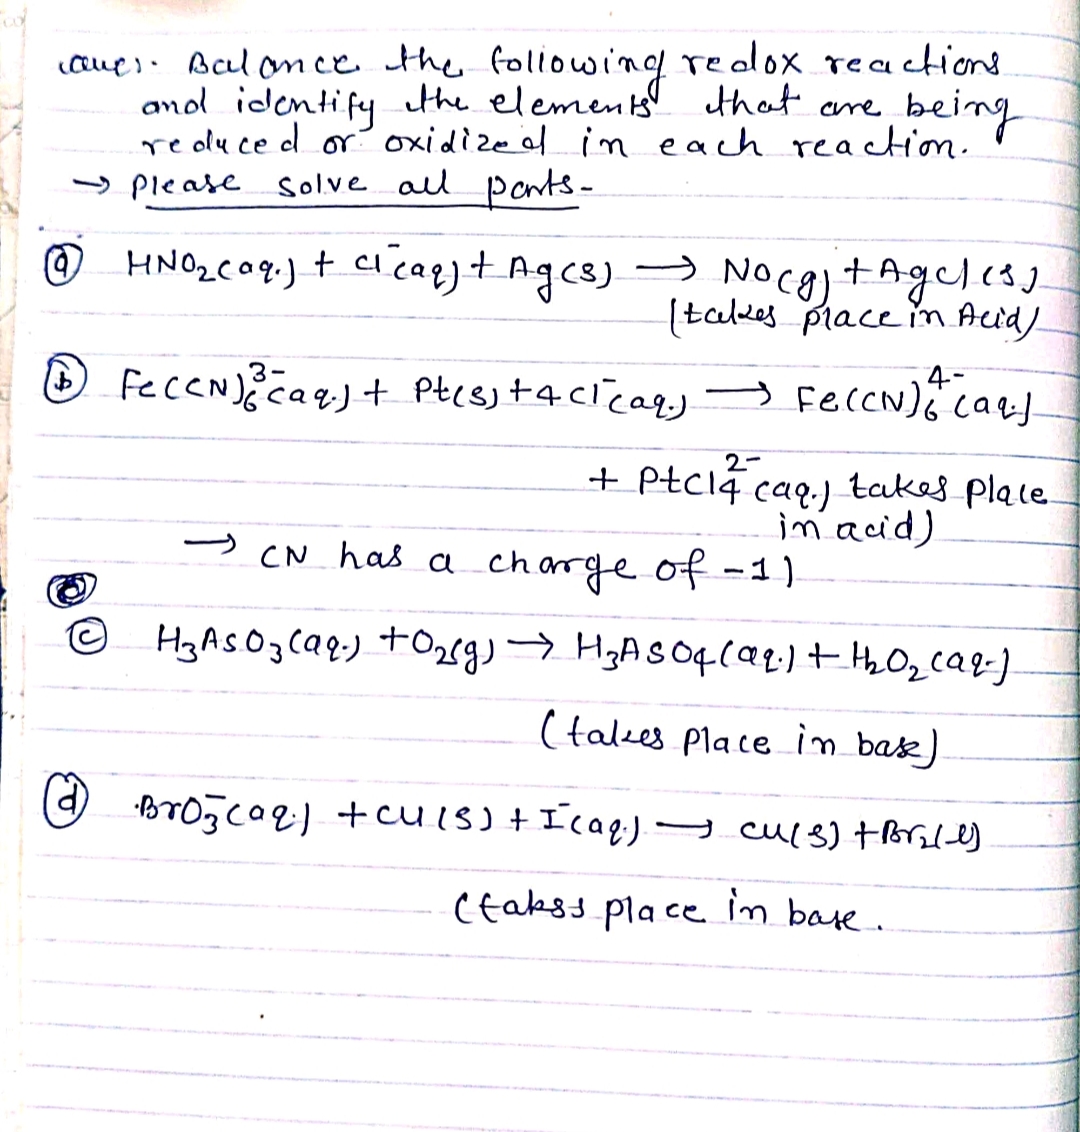 Balance the following redox reactions
and identify the elements that are being
reduced or oxidized in each reaction.
→ Please solve all parts-
ⓐ HNO₂(aq.) + Cl⁻(aq) + Ag(s) → NO(g) + AgCl(s)
(takes place in Acid)
ⓑ Fe(CN)₆³⁻(aq.) + Pt(s) + 4Cl⁻(aq.) → Fe(CN)₆⁴⁻(aq.)
+ PtCl₄²⁻(aq.) takes place
in acid)
→ CN has a charge of -1)
ⓒ H₃AsO₃(aq.) + O₂(g) → H₃AsO₄(aq.) + H₂O₂(aq.)
(takes place in base)
ⓓ BrO₃⁻(aq.) + Cu(s) + I⁻(aq.) → Cu(s) + Br₂(l)
(takss place in base.